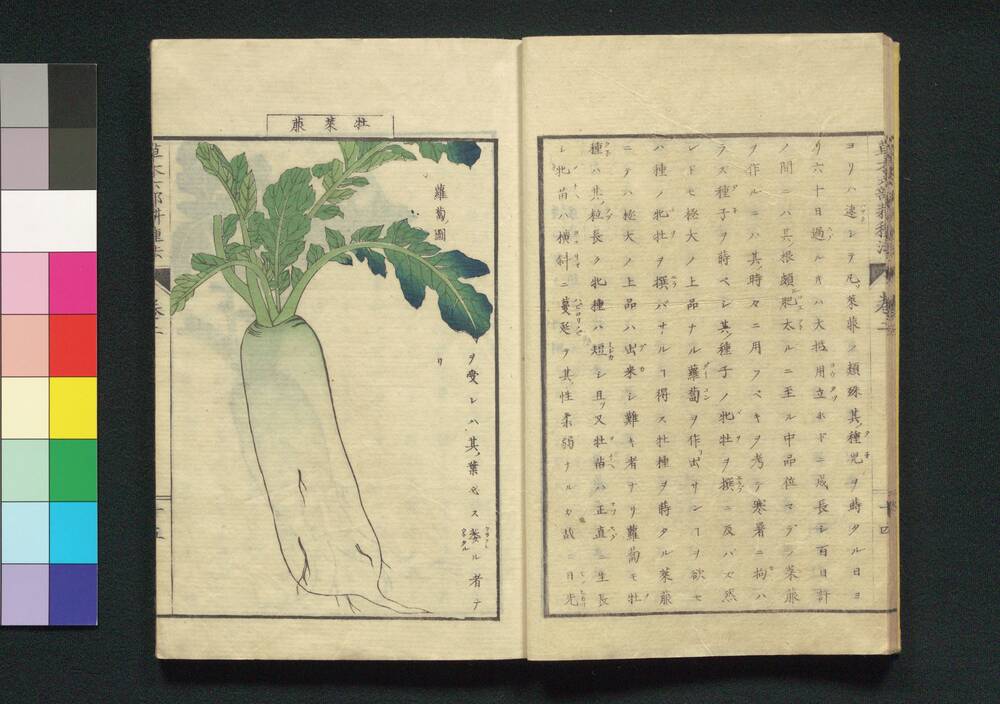 ヨリハ速シテ凡ソ菜菔ノ類殊其種兒ヲ時タル日ヨ
リ六十日過ルキハ大抵用立ホドニ成長シ百日許
ノ間ニハ其根頗肥太ルニ至ル中品位マデノ菜菔
ヲ作ルニハ其時々ニ用フベキヲ考テ寒暑ニ拘ハ
ラズ種子ヲ時ベシ其種子ノ牝牡ヲ撰ニ及バズ然
レドモ極大ノ上品ナル蘿蔔ヲ作出サンヿヲ欲セ
ハ種ノ牝牡ヲ撰バザルヿ得ス牡種ヲ蒔タル菜菔
ニテハ極大ノ上品ハ出来シ難キ者ナリ蘿蔔モ牡
種ハ其粒長ク牝種ハ短シ且ツ又牡苗ハ正直ニ生長
シ牝苗ハ横斜ニ蔓延ヲ其性柔弱ナルカ故ニ日光
草木六部耕種法
巻二
十四
牡菜菔
蘿蔔圖
ヲ受レハ其葉必ス萎ル者ナ
リ
草木六部耕種法